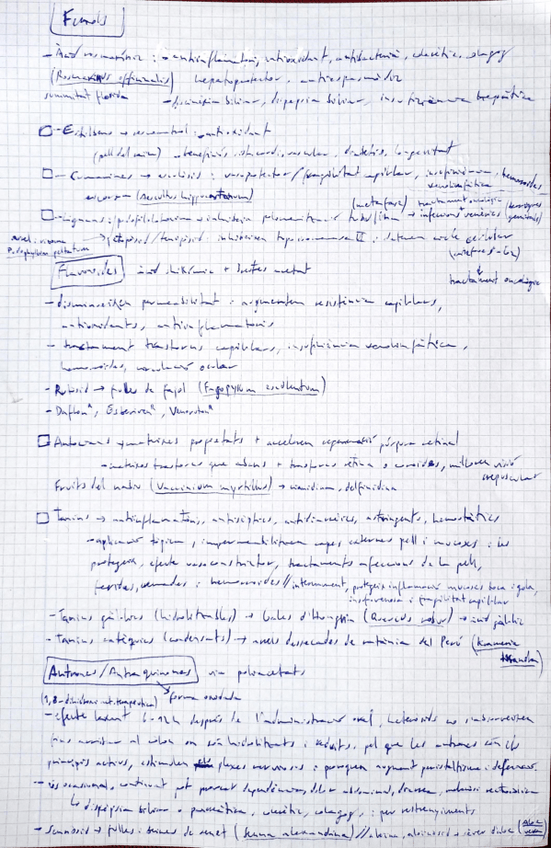 Fenols
- Àcid rosmarínic : - antiinflamatori, antioxidant, antibacterià, colerètic, colagog
(Rosmarinus officinalis) hepatoprotector, antiespasmòdic
sumitat florida - discinèsia biliar, dispèpsia biliar, insuficiència hepàtica
- Estilbens → resveratrol : antioxidant
(pell del raïm) → beneficiós cardiovascular, diabetis, longevitat
- Cumarines → esculòsid : venoprotector / fragilitat capil·lar, insuficiència venolimfàtica, hemorroides
escorça (Aesculus hippocastanum)
- Lignans : podofil·lotoxina → inhibeixen polimerització tubulina → infeccions venèries
(metafase) tractament oncològic (berrugues genitals)
arrel, rizoma → etopòsid / tenipòsid inhibeixen topoisomerasa II : aturen cicle cel·lular
Podophyllum peltatum
tractament oncològic
Flavonoides àcid shikímic + acetat
- disminueixen permeabilitat i augmenten resistència capil·lars,
antioxidants, antiinflamatoris
- tractament trastorns capil·lars, insuficiència venolimfàtica,
hemorroides, ocular
- Rutòsid → fulles de fajol (Fagopyrum esculentum)
- Daflon®, Esberiven®, Venoruton®
Antocians → mateixes propietats + acceleren regeneració púrpura retinal
- mateixes trastorns que abans + trastorns retina i coroides, milloren visió crepuscular
Fruits del nabiu (Vaccinium myrtillus) → cianidina, delfinidina
Tanins → antiinflamatoris, antisèptics, antidiarreics, astringents, hemostàtics
- aplicació tòpica, impermeabilitzen capes externes pell i mucoses i les
protegeix, efecte vasoconstrictor, tractaments afeccions de la pell,
ferides, cremades i hemorroides // internament, protegeix inflamació mucoses boca i gola,
fragilitat capil·lar
- Tanins gàl·lics (hidrolitzables) → Gales d'
- Tanins catèquics (condensats) → arrels dessecades de ratània del Perú (Krameria triandra)
Antrones / Antraquinones via poliacetats
forma oxidada
- efecte laxant 6-12h després de l'administració oral, heteròsids no s'absorbeixen
fins arribar al còlon on són hidrolitzats i reduïts, pel que les antrones són els
principis actius, estimulen plexes nerviosos i provoquen augment peristaltisme i defecació.
- ús ocasional, continuat pot provocar dependència, dolor abdominal, diarrea,
↳ dispèpsia biliar o pancreàtica, colerètic, colagog, per restrenyiments
- Sennòsid → fulles i beines de senet (Senna alexandrina) // aloïna, → sèver d'àloe (Aloe vera)